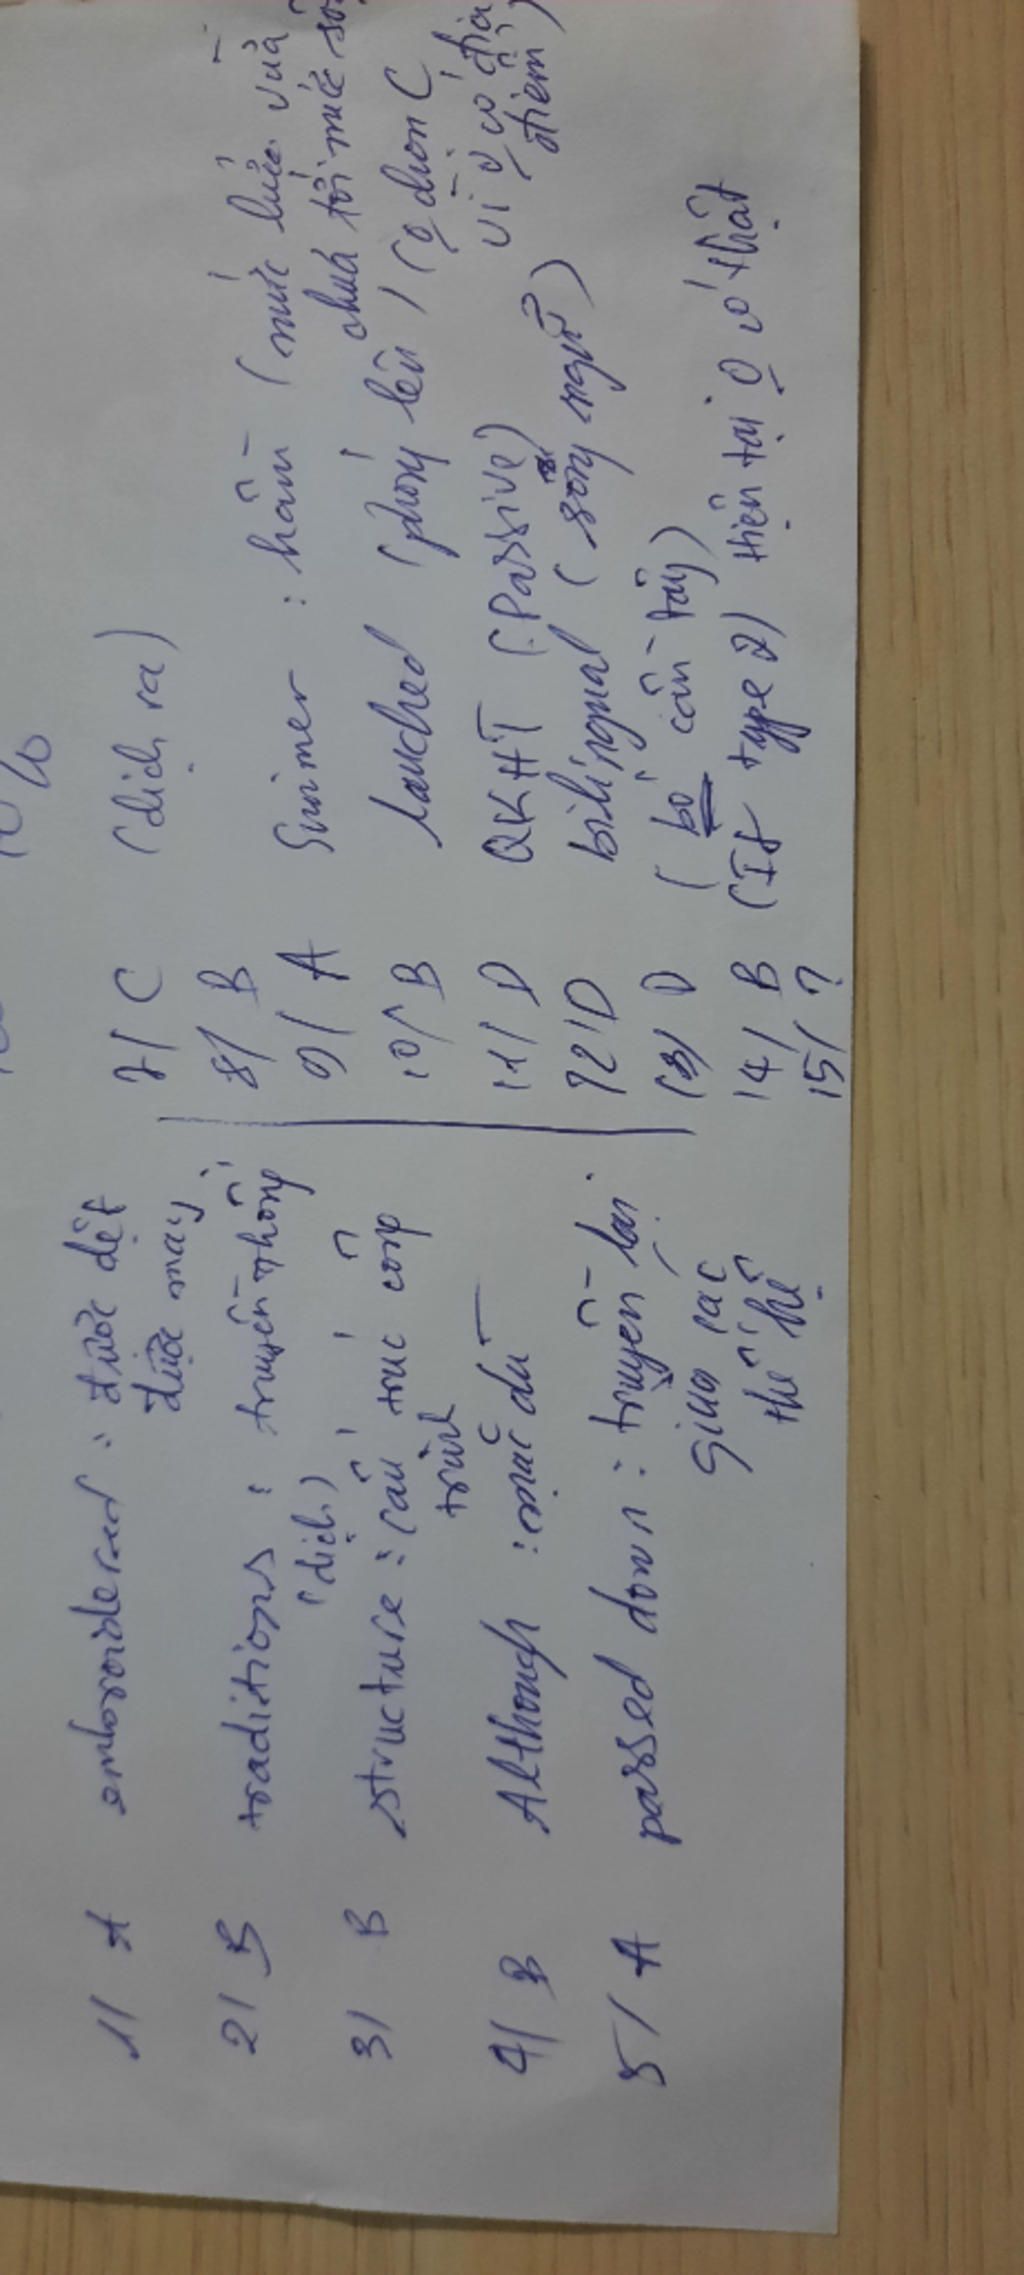 1/ A embroidered : được dệt
được may
2/ B traditions : truyền thống
(dịch)
3/ B structure : cấu trúc công
trình
4/ B Although : mặc dù
5/ A passed down : truyền lại
giữa các
thế hệ
7/ C (dịch ra)
8/ B
9/ A Simmer : hầm (nước lửa vừa
chưa tới mức sôi
10/ B lauched (phóng lên) (0 chọn C
vì 0 có địa
điểm)
11/ D QKHT (Passive)
12/ D bilingual (song ngữ)
13/ D (bó cẩn tây)
14/ B (If type 2) hiện tại 0 có thật
15/ ?